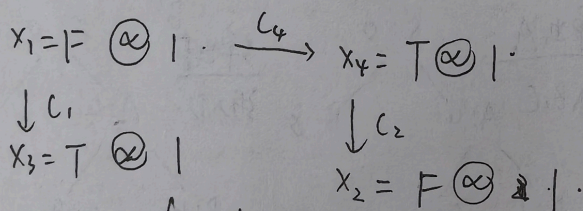 x₁=F @ 1. C₄→ x₄= T @ 1.
↓ C₁ ↓ C₂
x₃= T @ 1
x₂= F @ 1.